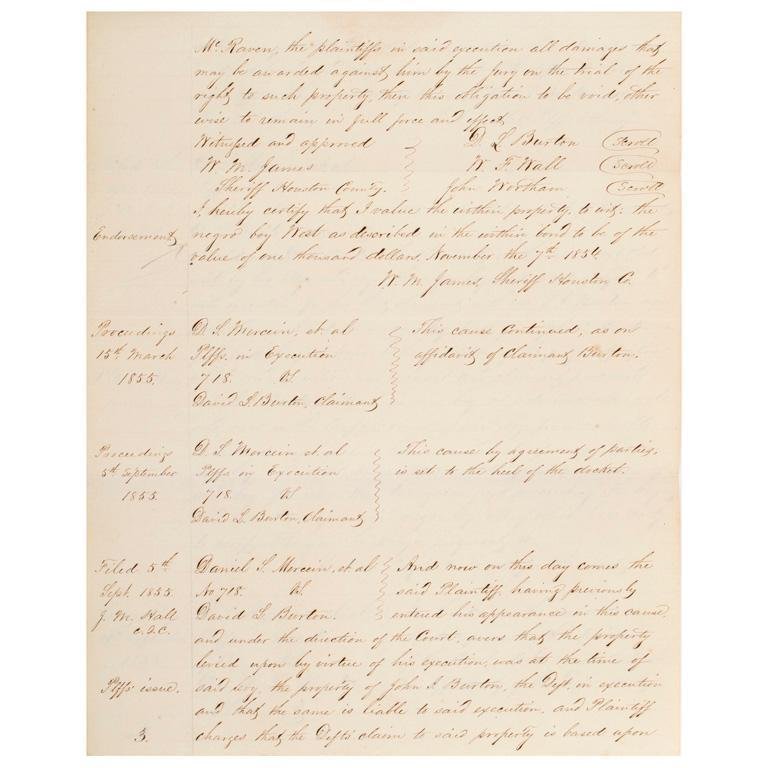 Mc Raven, the plaintiffs in said execution all damages that
may be awarded against him by the jury on the trial of the
right to such property, then this obligation to be void, other
wise to remain in full force and effect
Witnessed and approved D. L. Burton Scroll
W. M. James W. F. Wall Scroll
Sheriff Houston County. John Wortham Scroll
I, hereby certify that I value the within property, to wit: the
Endorsement negro boy West as described in the within bond to be of the
value of one thousand dollars, November the 7th 1854
W. M. James, Sheriff Houston Co.
Proceedings D. S. Mercein, et. al This cause Continued, as on
15th March Plffs. in Execution affidavit of Claimant Burton.
1855. 718. vs
David L. Burton, Claimant
Proceedings D. S. Mercein et. al This cause by agreement of parties,
5th September Plffs in Execution is set to the heel of the docket.
1855. 718. vs
David L. Burton, Claimant
Filed 5th Daniel S. Mercein, et. al And now on this day comes the
Sept. 1855 No 718. vs. said Plaintiff, having previously
J. M. Hall David L. Burton. entered his appearance in this cause
c.d.c. and under the direction of the Court, avers that the property
levied upon by virtue of his execution, was at the time of
Plffs' issue. said levy, the property of John I. Burton, the Deft. in execution
and that the same is liable to said execution. and Plaintiff
3. charges that the Defts' claim to said property is based upon